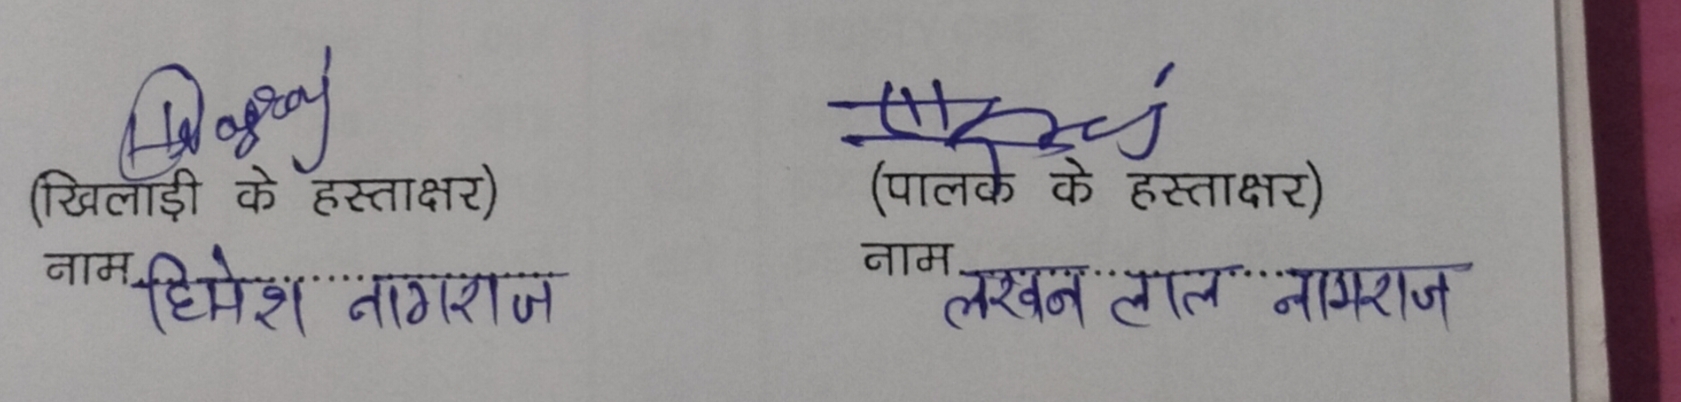 (खिलाड़ी के हस्ताक्षर)
(पालक के हस्ताक्षर)
नाम हिमेश नागराज
नाम लखन लाल नागराज